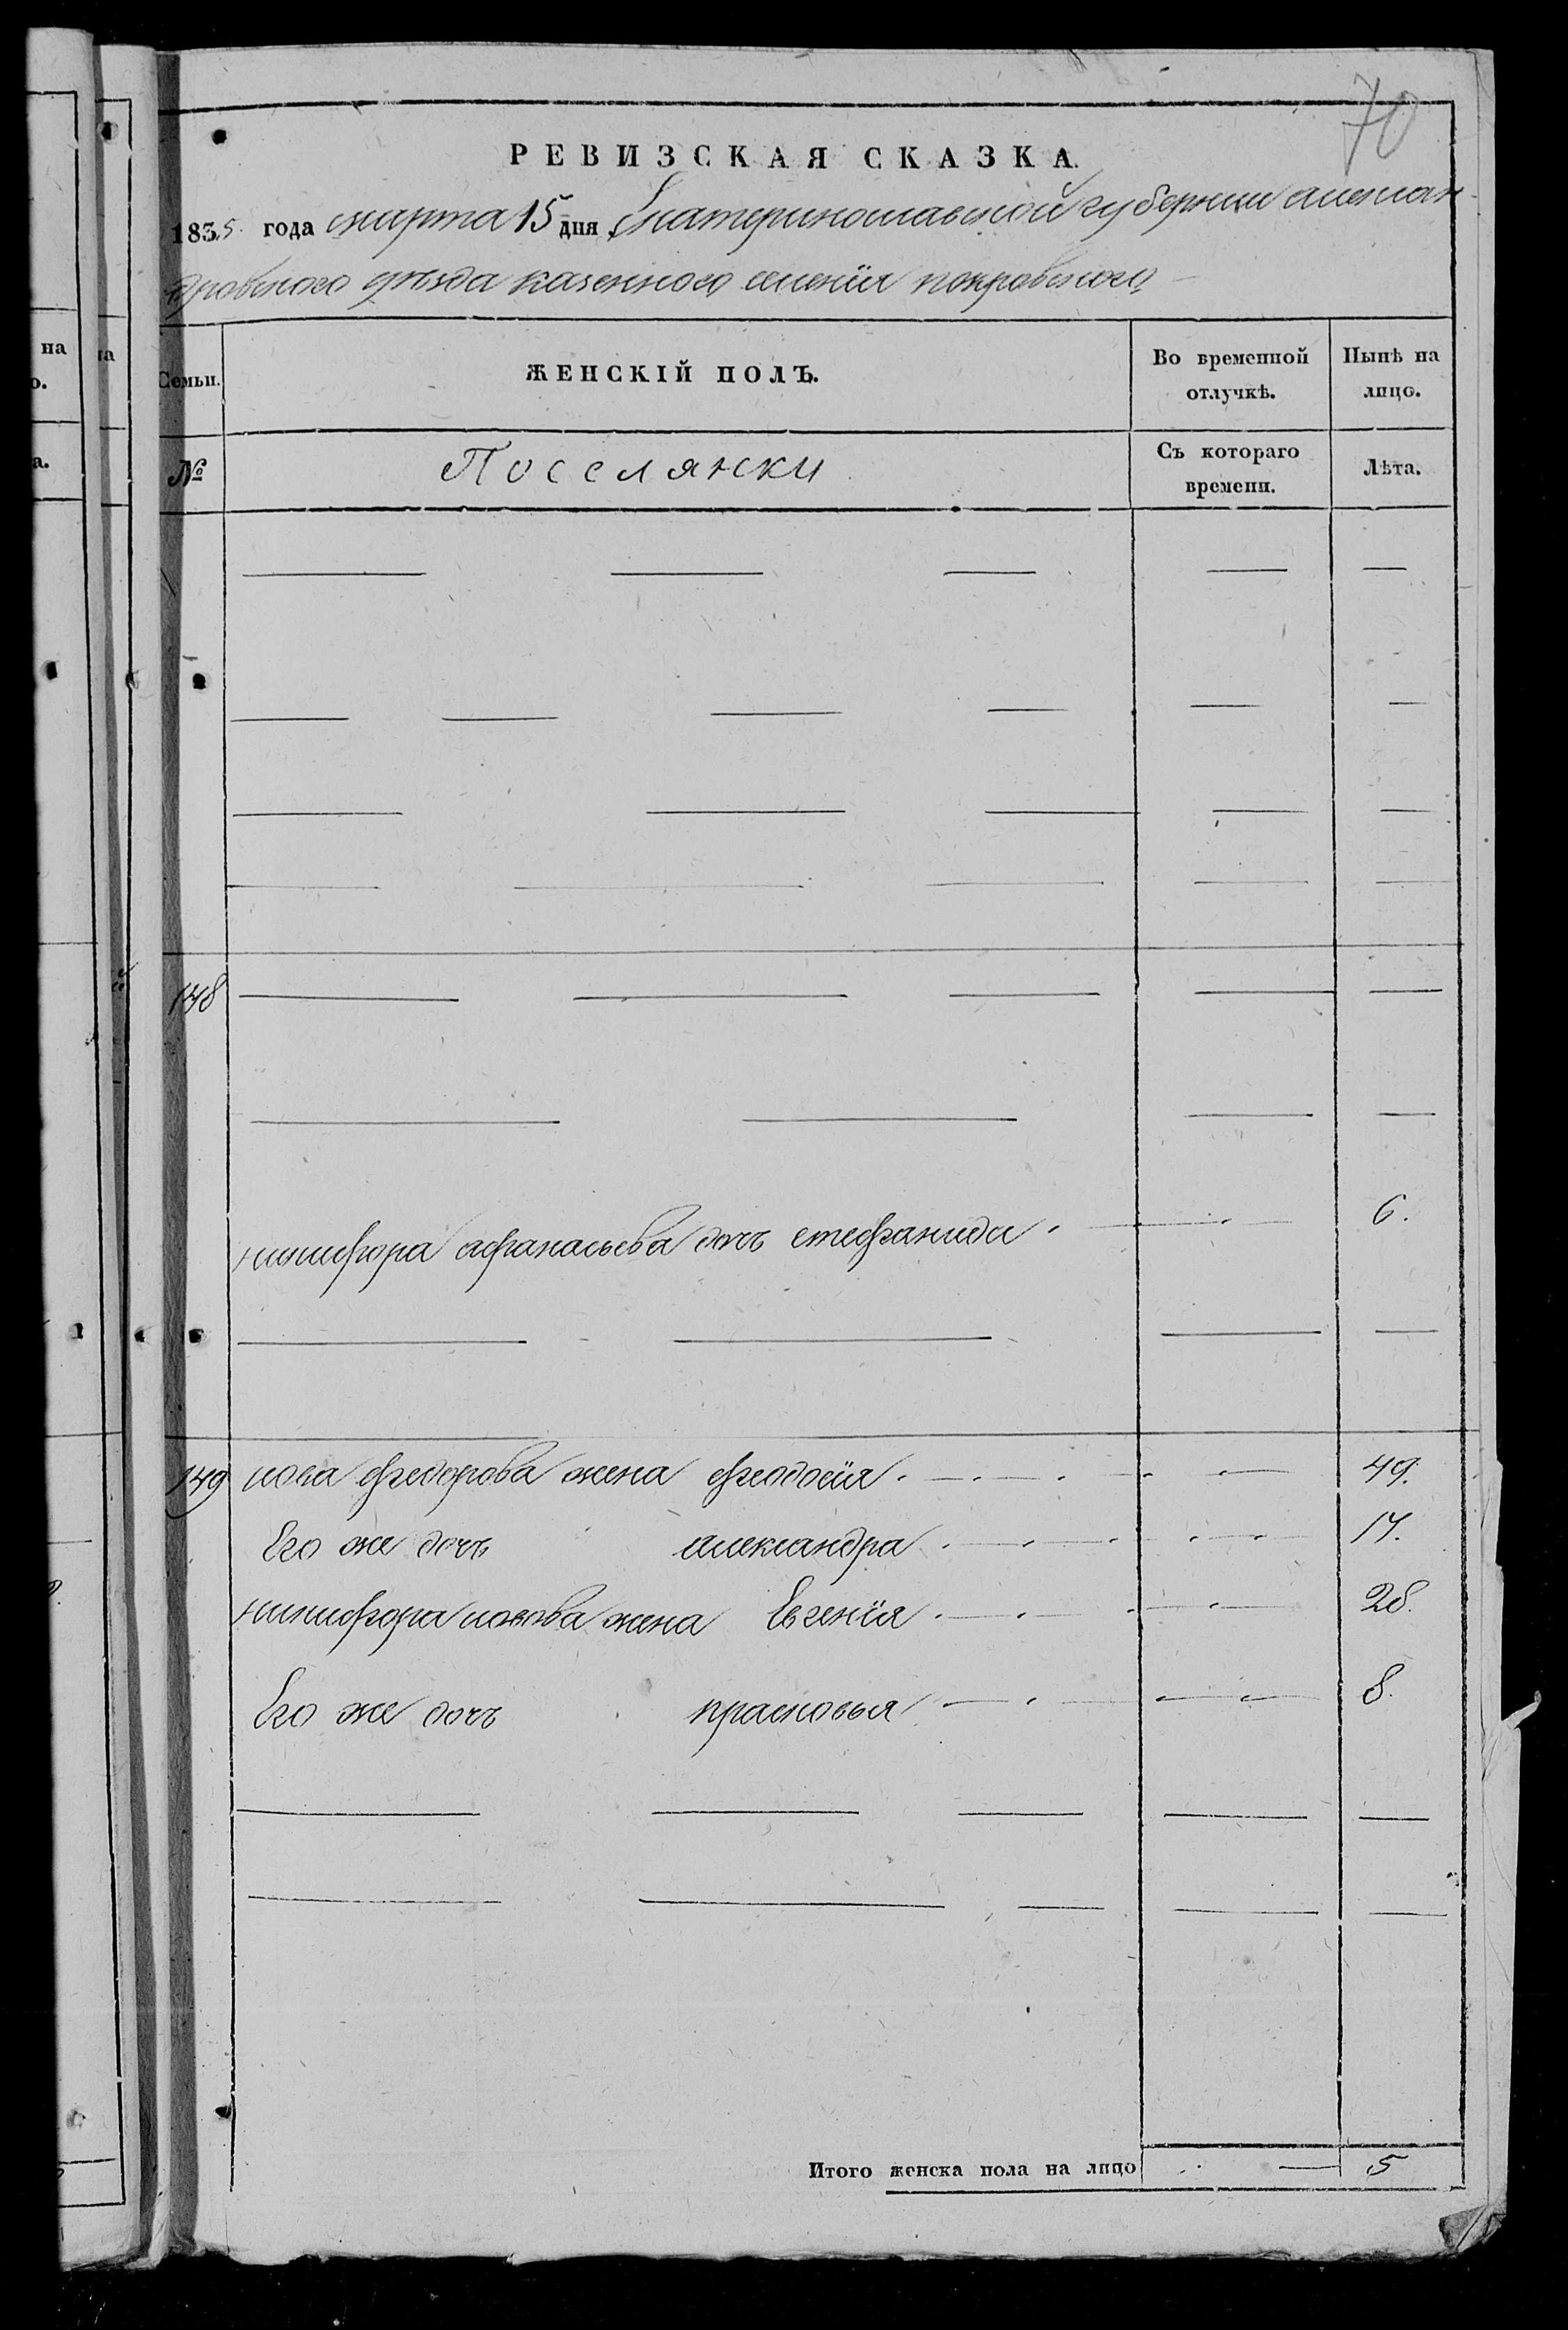 70
РЕВИЗСКАЯ СКАЗКА.
1835 года марта 15 дня Екатеринославской губернии алексан-
дровского уѣзда казенного селенія покровского
Семьи. ЖЕНСКІЙ ПОЛЪ. Во временной отлучкѣ. Нынѣ на лицо.
№ Поселянки Съ котораго времени. Лѣта.
148
никифора афанасьева дочь стефанида 6.
149 иова федорова жена феодосія 49.
Его же дочь александра 14.
никифора иовова жена Евгенія 28.
Его же дочь прасковья 8.
Итого женска пола на лицо 5